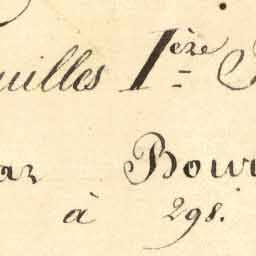 uilles 1ère
ar Bour
à 298.